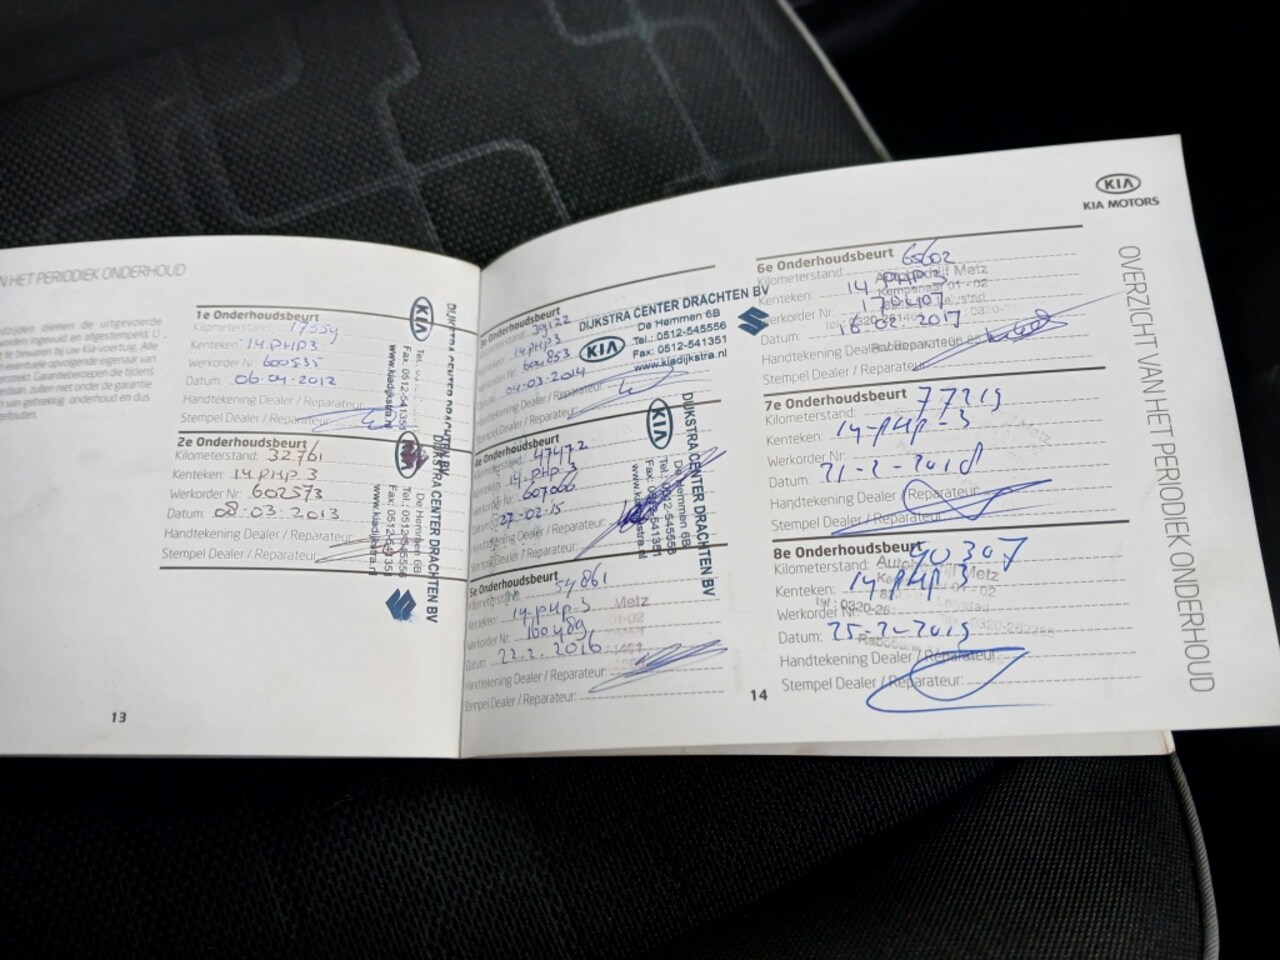 N HET PERIODIEK ONDERHOUD
dienen de uitgevoerde
worden ingevuld en afgestempeld. U
te bewaren bij uw Kia-voertuig. Alle
eventuele opvolgende eigenaar van
zullen niet onder de garantie
van gebrekkig onderhoud en dus
1e Onderhoudsbeurt
Kilometerstand: 17559
Kenteken: 14.PHP3
Werkorder Nr: 600535
Datum: 06.04.2012
Handtekening Dealer / Reparateur:
Stempel Dealer / Reparateur:
KIA
DIJKSTRA CENTER DRACHTEN BV
Tel.:
Fax: 0512-541351
www.kiadijkstra.nl
2e Onderhoudsbeurt
Kilometerstand: 32761
Kenteken: 14.PHP.3
Werkorder Nr: 602573
Datum: 08.03.2013
Handtekening Dealer / Reparateur:
Stempel Dealer / Reparateur:
KIA
DIJKSTRA CENTER DRACHTEN BV
De Hemmen 6B
Tel.: 0512-545556
Fax: 0512-541351
www.kiadijkstra.nl
13
Onderhoudsbeurt
39122
14.PHP3
604853
04-03-2014
Handtekening Dealer / Reparateur:
Stempel Dealer / Reparateur:
DIJKSTRA CENTER DRACHTEN BV
De Hemmen 6B
KIA
Tel.: 0512-545556
Fax: 0512-541351
www.kiadijkstra.nl
4e Onderhoudsbeurt
Kilometerstand: 47472
Kenteken: 14-PHP-3
Werkorder Nr: 607066
Datum: 27-02-15
Handtekening Dealer / Reparateur:
Stempel Dealer / Reparateur:
KIA
DIJKSTRA CENTER DRACHTEN BV
De Hemmen 6B
Tel.: 0512-545556
Fax: 0512-541351
www.kiadijkstra.nl
5e Onderhoudsbeurt
Kilometerstand: 54861
Kenteken: 14-PHP-3
Werkorder Nr: 160489
Datum: 22.2.2016
Metz
01-02
Handtekening Dealer / Reparateur:
Stempel Dealer / Reparateur:
14
KIA
KIA MOTORS
6e Onderhoudsbeurt
Kilometerstand: 65602
Kenteken: 14 PHP3
Werkorder Nr: 1700407
Datum: 16.02.2017
Metz
01 - 02
Handtekening Dealer / Reparateur:
Stempel Dealer / Reparateur:
7e Onderhoudsbeurt
Kilometerstand: 77219
Kenteken: 14-PHP-3
Werkorder Nr:
Datum: 21-2-2018
Handtekening Dealer / Reparateur:
Stempel Dealer / Reparateur:
8e Onderhoudsbeurt
Kilometerstand: 90307
Kenteken: 14-PHP 3
Werkorder Nr:
Datum: 25-2-2019
Metz
01 - 02
Handtekening Dealer / Reparateur:
Stempel Dealer / Reparateur:
OVERZICHT VAN HET PERIODIEK ONDERHOUD